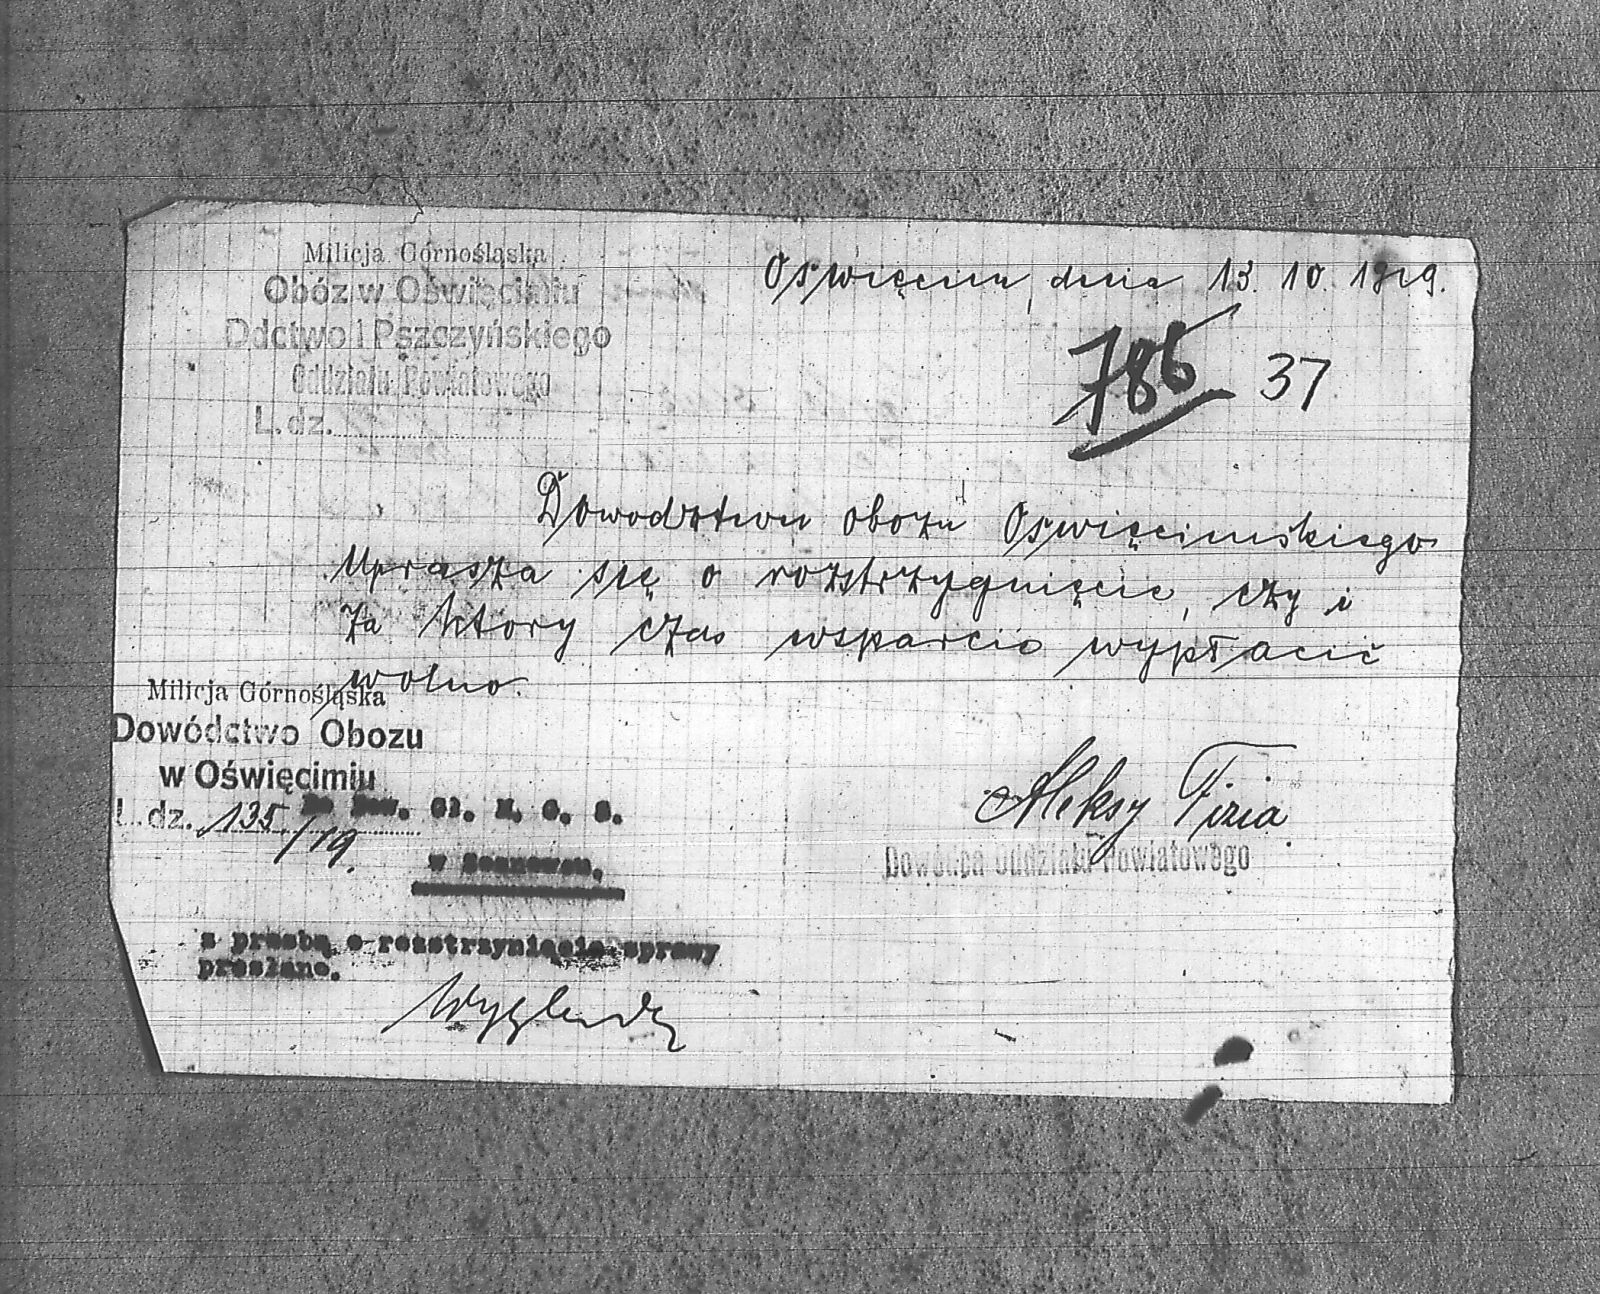 Milicja Górnośląska
Obóz w Oświęcimiu
Ddctwo I Pszczyńskiego
Oddziału Powiatowego
L. dz.
Oświęcim, dnia 13. 10. 1919.
786 37
Dowodztwu obozu Oświęcimskiego
Uprasza się o rozstrzygnięcie, czy i
za ktory czas wsparcie wypłacić
wolno.
Milicja Górnośląska
Dowództwo Obozu
w Oświęcimiu
L. dz. 135/19.
Do Dow. Gł. M. G. S.
w Sosnowcu.
Aleksy Fizia
Dowódca Oddziału Powiatowego
z prośbą o rozstrzynięcie sprawy
przesłano.